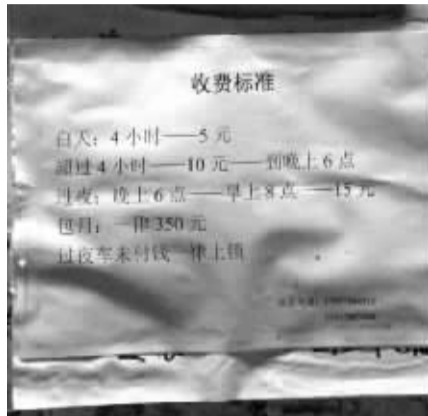 收费标准
白天：4小时——5元
超过4小时——10元——到晚上6点
过夜：晚上6点——早上8点——15元
包月：一律350元
过夜车未付钱一律上锁